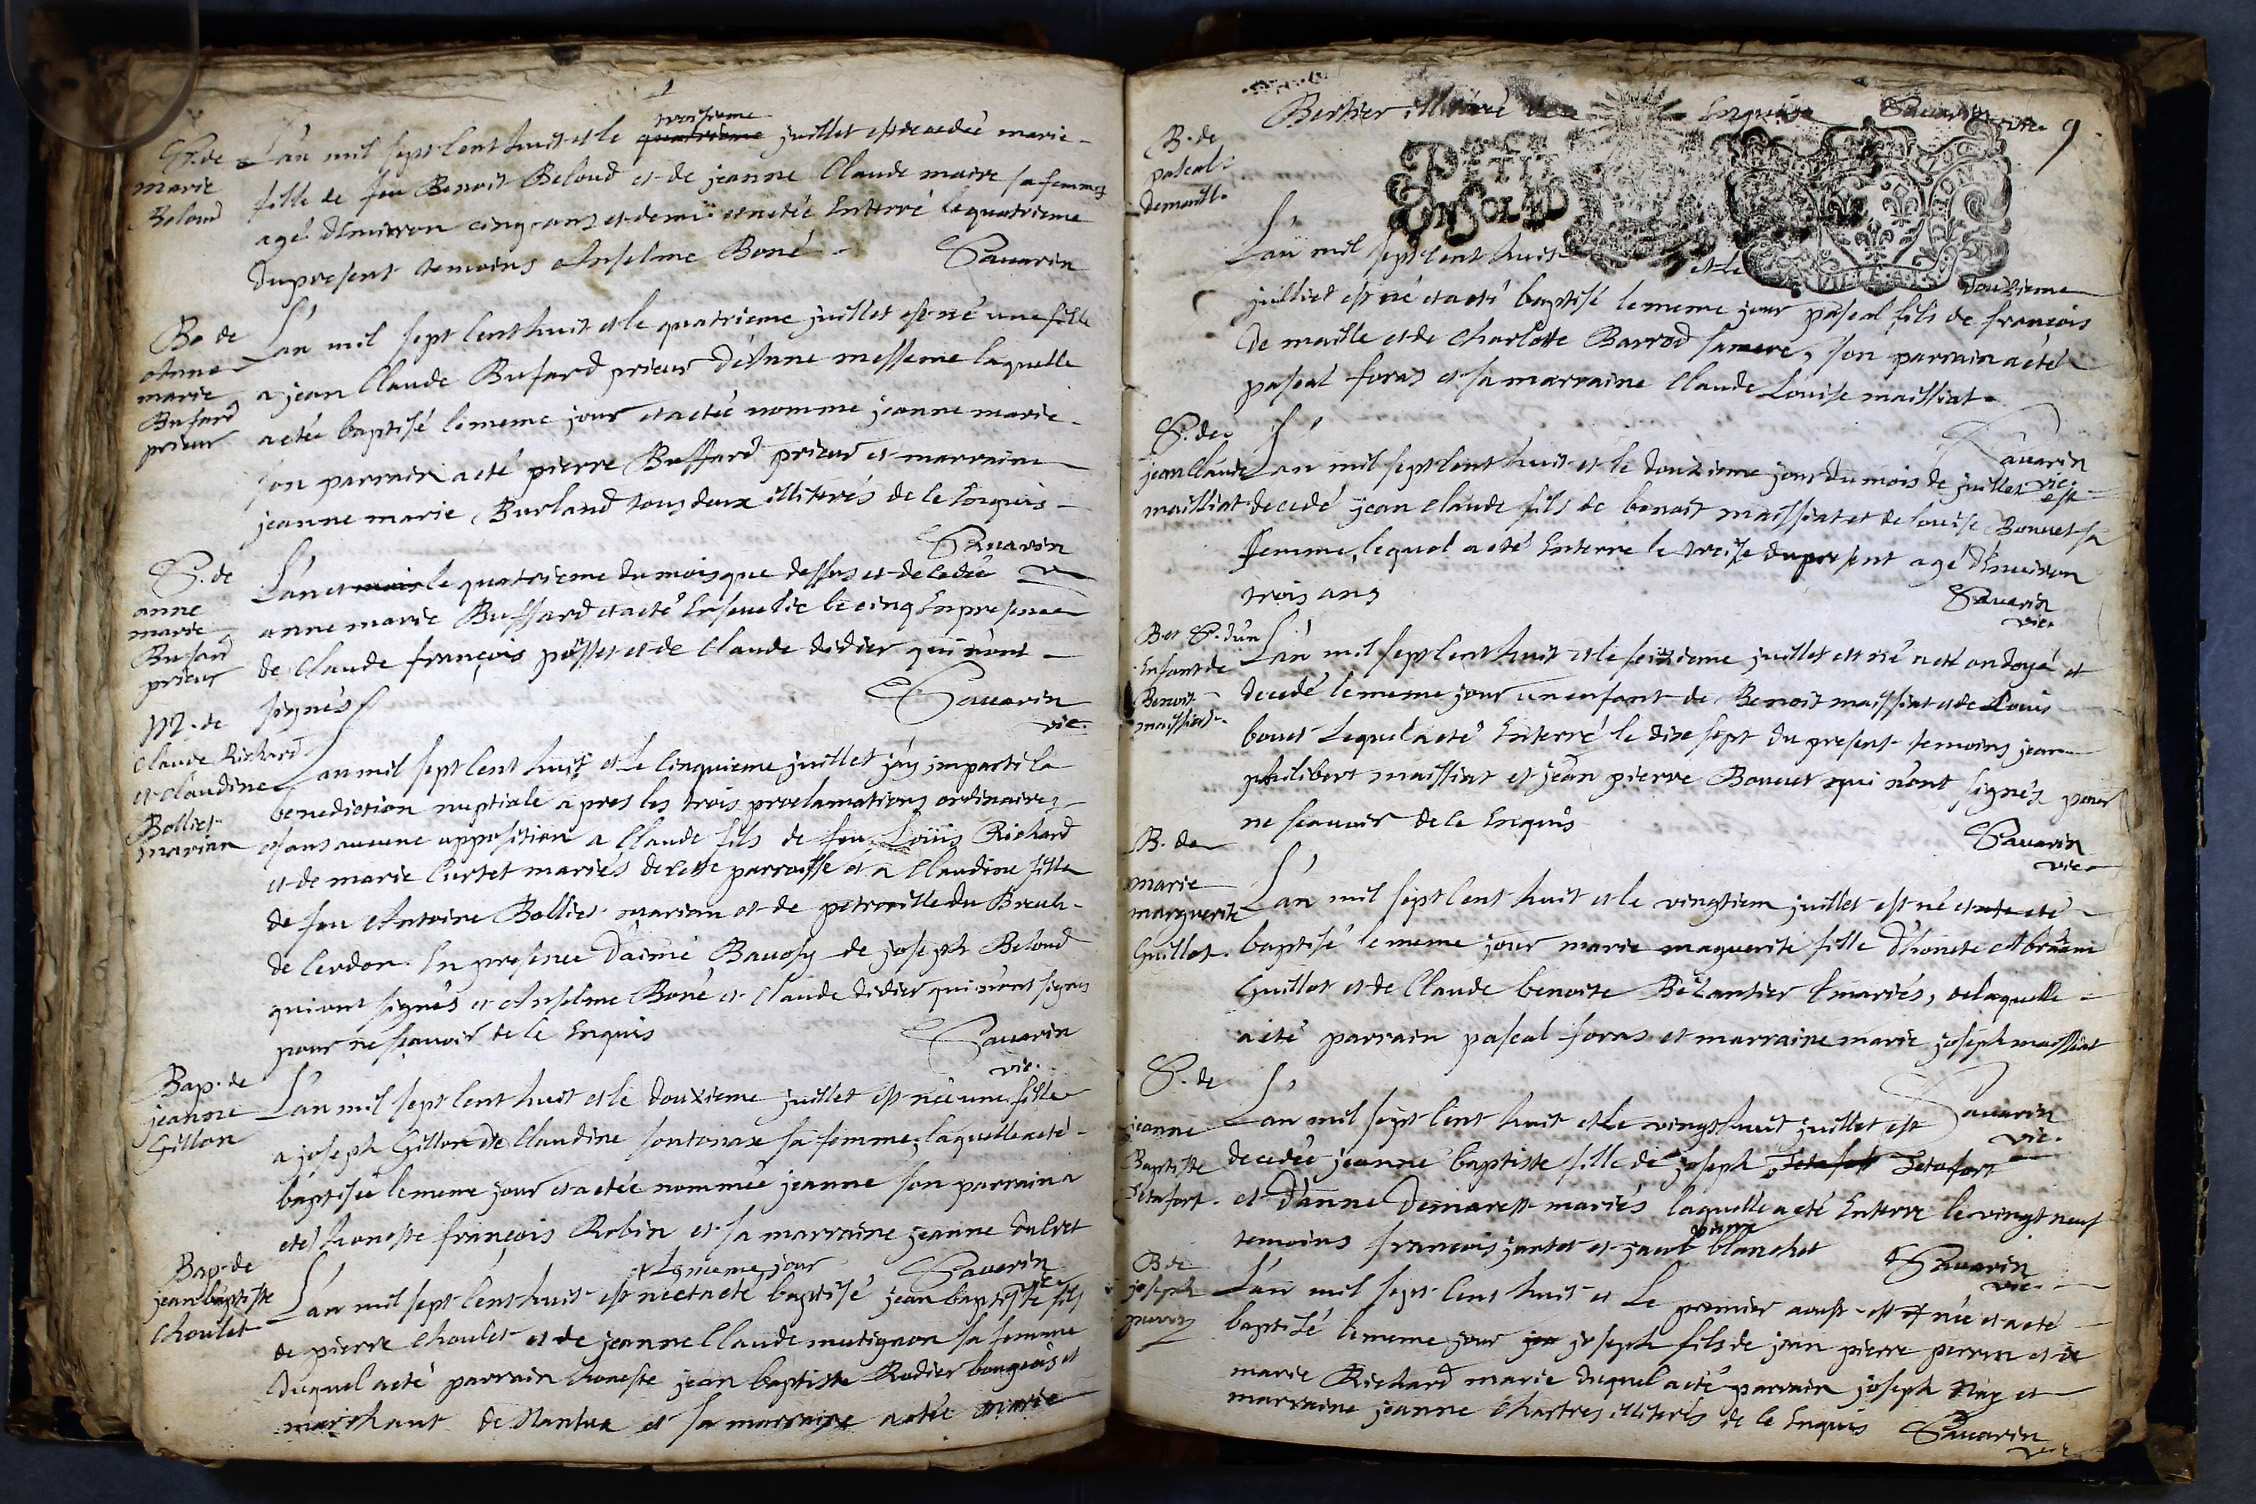 troisieme
L'an mil sept cent huit et le quatrieme juillet est decedée marie
fille de feu Benoit Beloud et de jeanne Claude maire sa femme
agé d'Environ cinq ans et demi et a etée Enterré le quatrieme
du present temoins Anselme Boné Sauarin
St. de
marie
Beloud
L'an mil sept cent huit et le quatrieme juillet est né une fille
a jean Claude Bufard prieur d'Anne messeme laquelle
a etée baptisé le meme jour et a etée nomme jeanne marie
son parrain a eté pierre Buffard prieur et marraine
jeanne marie Burland tous deux illiterés de ce Enquis
Sauarin
Ba de
Anne
marie
Bufard
prieur
L'an et mois le quatrieme du mois que dessus est decedée
anne marie Buffard et a eté Enseuelie le cinq En presence
de Claude françois posset et de Claude didier qui n'ont
signés Sauarin
vic.
S. de
anne
marie
Bufard
prieur
L'an mil sept cent huit et le cinquieme juillet j'ay imparti la
benediction nuptiale apres les trois proclamations ordinaires
et sans aucune opposition a Claude fils de feu Loüis Richard
et de marie Curtet mariés de cette parroisse et a Claudine fille
de feu Antoine Bolliet marian et de petronille du Breul
de Cerdon En presence d'aimé Bauosy de joseph Beloud
qui ont signés et Anselme Boné et Claude didier qui n'ont signés
pour ne sçauoir de ce Enquis Sauarin
vic.
M. de
Claude Richard
et Claudine
Bolliet
marian
L'an mil sept cent huit et le douxieme juillet est née une fille
a joseph Gillon et de Claudine sontonax sa femme, laquelle a eté
baptisée le meme jour et a etée nommée jeanne son parrain a
eté honeste françois Robin et sa marraine jeanne Sauarin
Bap. de
jeanne
Gillon
et le meme jour
L'an mil sept cent huit est né et a eté baptisé jean baptiste fils
de pierre Choulet et de jeanne Claude mutignon sa femme
duquel a eté parrain honeste jean baptiste Rodier bourgeois et
marchant de Nantua et sa marraine a etée marie
Bap. de
jean baptiste
Choulet
Bertier illiteré de ce Enquise Sauarin vic.
9
PETIT
EN SOL 4 D
L'an mil sept cent huit et le douxieme
juilliet est né et a eté baptisé le meme jour pascal fils de françois
de maille et de Charlotte Barrod sa mere, son parrain a eté
pascal foras et sa marraine Claude Louise maissiat
Sauarin
vic.
B. de
pascal
demaill
L'an mil sept cent huit et le douxieme jour du mois de juillet est
decedé jean Claude fils de benoit maissiat et de louise Bouuet sa
femme, lequel a eté Enterre le treise du present agé d'Enuiron
trois ans Sauarin
vic.
S. de
jean Claude
maissiat
L'an mil sept cent huit et le seizieme juillet est né a eté ondoyé et
decedé le meme jour un enfant de Benoit maissiat et de Louis
bouet Lequel a eté Enterré le dixe sept du present temoins jean
philibert maissiat et jean pierre Bouuet qui n'ont signés pour
ne scauoir de ce Enquis Sauarin
vic.
B. et S. d'un
Enfant de
Benoit
maissiat
L'an mil sept cent huit et le vingtiem juillet est né et a eté
baptisé le meme jour marie maguerite fille d'honete Abraam
Guillot et de Claude benoite Bezantier mariés, de laquelle
a eté parrain pascal foras et marraine marie joseph maissiat
Sauarin
vic.
B. de
marie
marguerite
Guillot
L'an mil sept cent huit et le vingt huit juillet est
decedée jeanne baptiste fille de joseph Tetafort
et d'anne Demarest mariés laquelle a eté Enterre le vingt neuf
temoins françois jantet et pierre blanchet Sauarin
vic.
S. de
jeanne
Baptiste
Tetafort
L'an mil sept cent huit et Le premier aoust est née et a eté
baptisé le meme jour joseph fils de jean pierre perrin et de
marie Richard marie duquel a eté parrain joseph Nay et
marraine jeanne Chartres illiterés de ce Enquis Sauarin
vic.
B. de
joseph